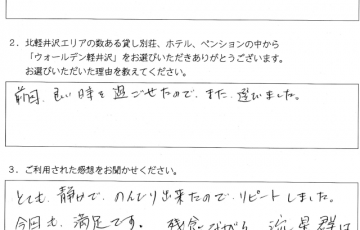 2．北軽井沢エリアの数ある貸し別荘、ホテル、ペンションの中から
「ウォールデン軽井沢」をお選びいただきありがとうございます。
お選びいただいた理由を教えてください。
前回、良い時を過ごせたので、また、選びました。
3．ご利用された感想をお聞かせください。
とても、静かで、のんびり出来たので、リピートしました。
今回も、満足です。残念ながら、流星群は